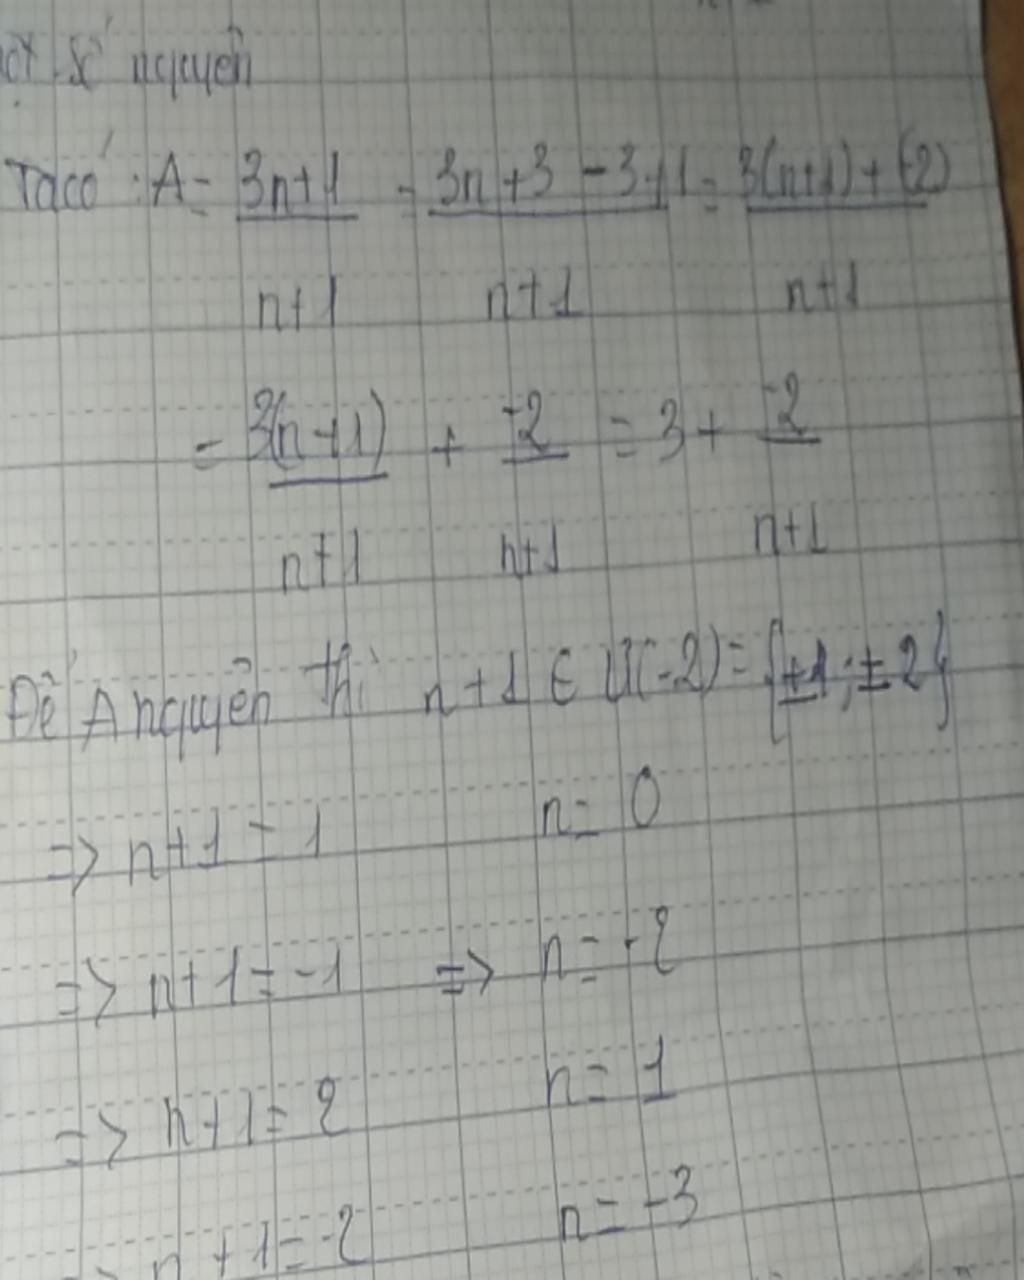 số nguyên
Ta có : A = 3n+1 / n+1 = 3n+3-3+1 / n+1 = 3(n+1)+(-2) / n+1
= 3(n+1) / n+1 + -2 / n+1 = 3 + -2 / n+1
Để A nguyên thì n+1 ∈ Ư(-2) = {±1; ±2}
=> n+1 = 1 n = 0
=> n+1 = -1 => n = -2
=> n+1 = 2 n = 1
=> n+1 = -2 n = -3